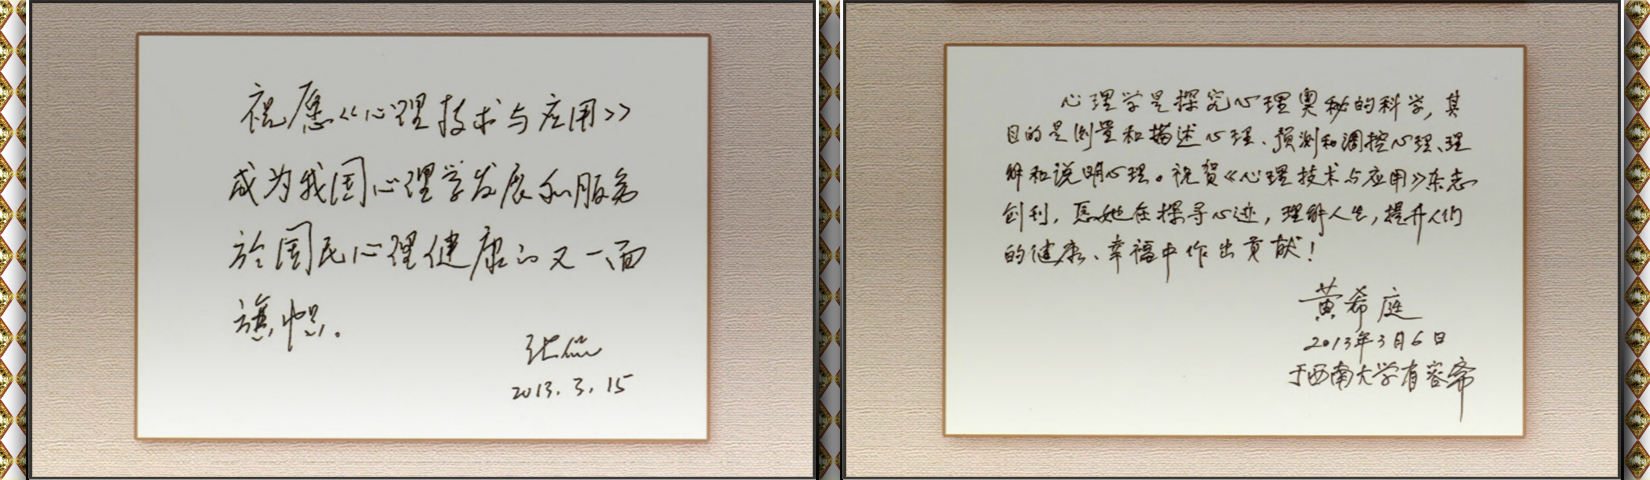 祝愿《心理技术与应用》
成为我国心理学发展和服务
于国民心理健康的又一面
旗帜。
张侃
2013.3.15
心理学是探究心理奥秘的科学,其
目的是测量和描述心理、预测和调控心理、理
解和说明心理。祝贺《心理技术与应用》杂志
创刊,愿她在探寻心迹,理解人生,提升人们
的健康、幸福中作出贡献!
黄希庭
2013年3月6日
于西南大学有容斋